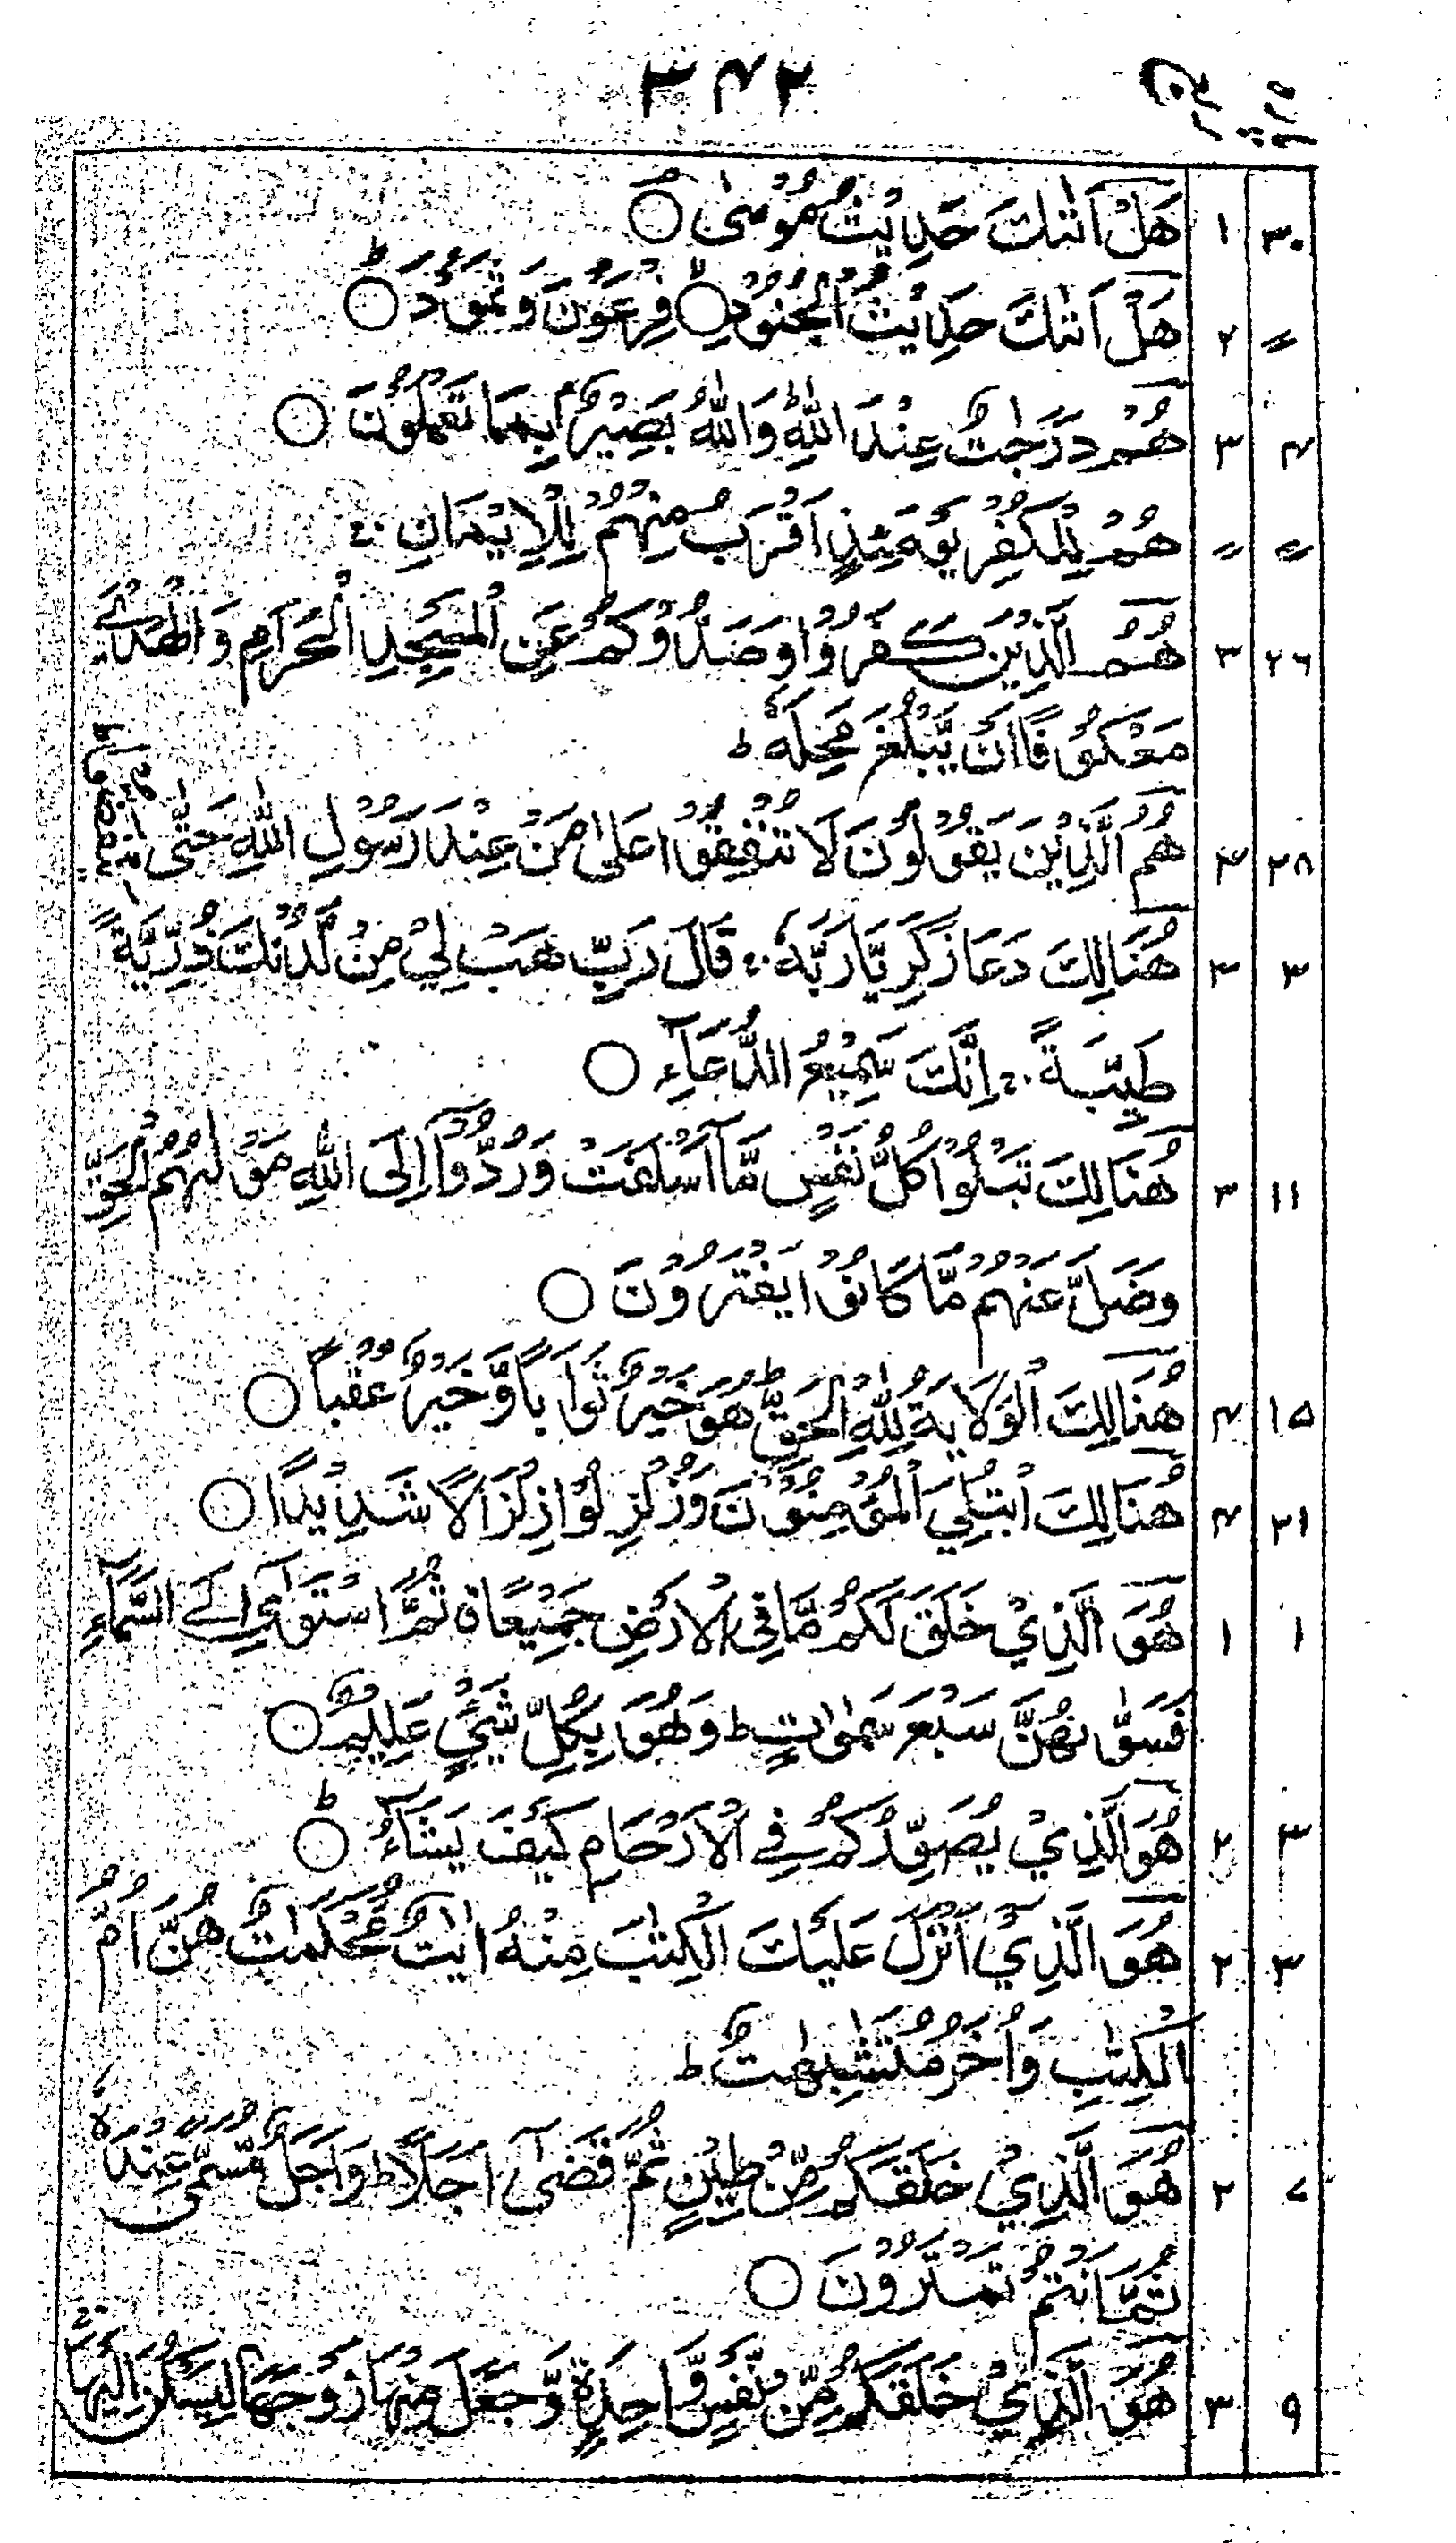 پارہ رکوع ۳۴۲
۳۰ ۱ هَلْ اَتٰىكَ حَدِيْثُ مُوْسٰى ○
〃 ۲ هَلْ اَتٰىكَ حَدِيْثُ الْجُنُوْدِ ○ فِرْعَوْنَ وَثَمُوْدَ ○ ط
۴ ۳ هُمْ دَرَجٰتٌ عِنْدَ اللّٰهِ وَاللّٰهُ بَصِيْرٌۢ بِمَا تَعْمَلُوْنَ ○
〃 〃 هُمْ لِلْكُفْرِ يَوْمَئِذٍ اَقْرَبُ مِنْهُمْ لِلْاِيْمَانِ ج
۲۶ ۳ هُمُ الَّذِيْنَ كَفَرُوْا وَصَدُّوْكُمْ عَنِ الْمَسْجِدِ الْحَرَامِ وَالْهَدْيَ
مَعْكُوْفًا اَنْ يَّبْلُغَ مَحِلَّهٗ ط
۲۸ ۳ هُمُ الَّذِيْنَ يَقُوْلُوْنَ لَا تُنْفِقُوْا عَلٰى مَنْ عِنْدَ رَسُوْلِ اللّٰهِ حَتّٰى يَنْفَضُّوْا ط
۳ ۳ هُنَالِكَ دَعَا زَكَرِيَّا رَبَّهٗ ج قَالَ رَبِّ هَبْ لِيْ مِنْ لَّدُنْكَ ذُرِّيَّةً
طَيِّبَةً ج اِنَّكَ سَمِيْعُ الدُّعَآءِ ○
۱۱ ۳ هُنَالِكَ تَبْلُوْا كُلُّ نَفْسٍ مَّآ اَسْلَفَتْ وَرُدُّوْٓا اِلَى اللّٰهِ مَوْلٰىهُمُ الْحَقِّ
وَضَلَّ عَنْهُمْ مَّا كَانُوْا يَفْتَرُوْنَ ○
۱۵ ۴ هُنَالِكَ الْوَلَايَةُ لِلّٰهِ الْحَقِّ ط هُوَ خَيْرٌ ثَوَابًا وَّخَيْرٌ عُقْبًا ○
۲۱ ۴ هُنَالِكَ ابْتُلِيَ الْمُؤْمِنُوْنَ وَزُلْزِلُوْا زِلْزَالًا شَدِيْدًا ○
۱ ۱ هُوَ الَّذِيْ خَلَقَ لَكُمْ مَّا فِى الْاَرْضِ جَمِيْعًا ق ثُمَّ اسْتَوٰٓى اِلَے السَّمَآءِ
فَسَوّٰىهُنَّ سَبْعَ سَمٰوٰتٍ ط وَهُوَ بِكُلِّ شَيْءٍ عَلِيْمٌ ○
۳ ۲ هُوَ الَّذِيْ يُصَوِّرُكُمْ فِے الْاَرْحَامِ كَيْفَ يَشَآءُ ○ ط
۳ ۲ هُوَ الَّذِيْٓ اَنْزَلَ عَلَيْكَ الْكِتٰبَ مِنْهُ اٰيٰتٌ مُّحْكَمٰتٌ هُنَّ اُمُّ
الْكِتٰبِ وَاُخَرُ مُتَشٰبِهٰتٌ ط
۷ ۲ هُوَ الَّذِيْ خَلَقَكُمْ مِّنْ طِيْنٍ ثُمَّ قَضٰٓى اَجَلًا ط وَاَجَلٌ مُّسَمًّى عِنْدَهٗ
ثُمَّ اَنْتُمْ تَمْتَرُوْنَ ○
۹ ۳ هُوَ الَّذِيْ خَلَقَكُمْ مِّنْ نَّفْسٍ وَّاحِدَةٍ وَّجَعَلَ مِنْهَا زَوْجَهَا لِيَسْكُنَ اِلَيْهَا ج